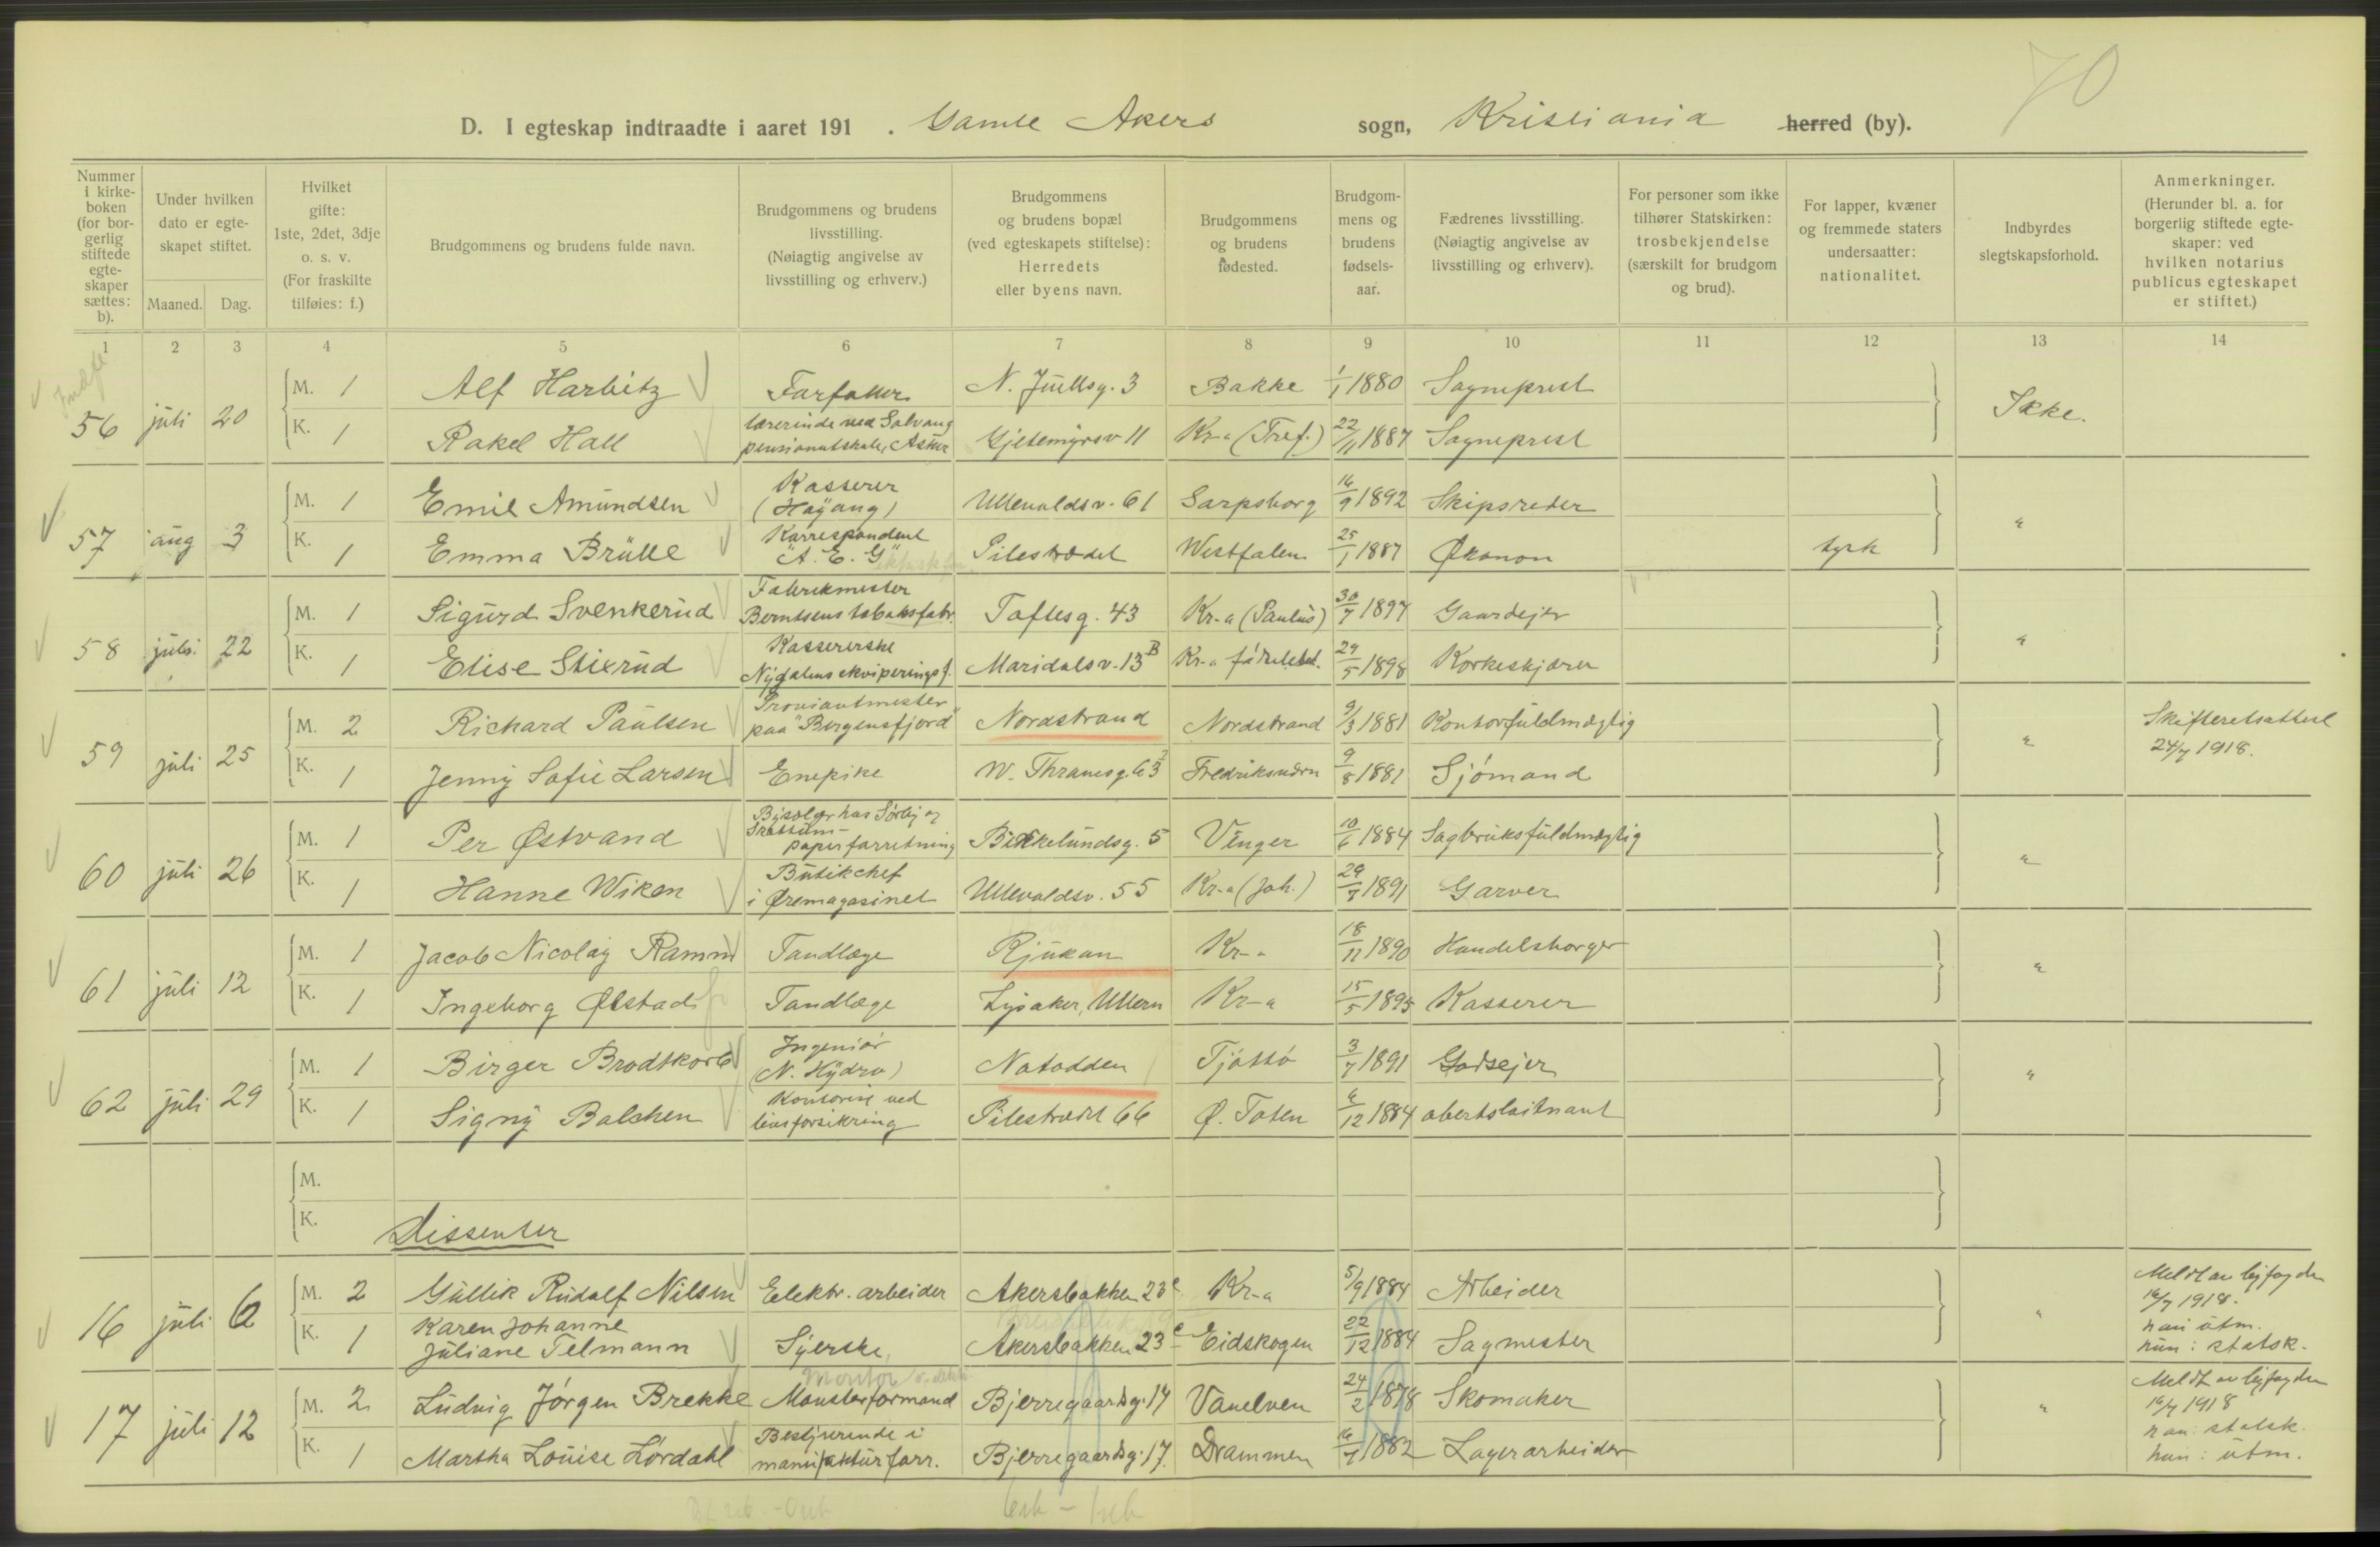 70
D. I egteskap indtraadte i aaret 191 . Gamle Akers sogn, Kristiania herred (by).
Nummer i kirkeboken (for borgerlig stiftede egteskaper sættes: b).
Under hvilken dato er egteskapet stiftet.
Maaned. Dag.
Hvilket gifte: 1ste, 2det, 3dje o. s. v. (For fraskilte tilføies: f.)
Brudgommens og brudens fulde navn.
Brudgommens og brudens livsstilling. (Nøiagtig angivelse av livsstilling og erhverv.)
Brudgommens og brudens bopæl (ved egteskapets stiftelse): Herredets eller byens navn.
Brudgommens og brudens fødested.
Brudgommens og brudens fødselsaar.
Fædrenes livsstilling. (Nøiagtig angivelse av livsstilling og erhverv).
For personer som ikke tilhører Statskirken: trosbekjendelse (særskilt for brudgom og brud).
For lapper, kvæner og fremmede staters undersaatter: nationalitet.
Indbyrdes slegtskapsforhold.
Anmerkninger. (Herunder bl. a. for borgerlig stiftede egteskaper: ved hvilken notarius publicus egteskapet er stiftet.)
1 2 3 4 5 6 7 8 9 10 11 12 13 14
56 juli 20 M. 1 Alf Harbitz Forfatter N. Juelsg. 3 Bakke 1/1 1880 Sogneprest Ikke.
K. 1 Rakel Hall lærerinde ved Solvang pensionatskole, Asker Gjetemyrsv 11 Kr-a (Tref.) 22/11 1887 Sogneprest
57 aug 3 M. 1 Emil Amundsen Kasserer (Høyang) Ullevaldsv. 61 Sarpsborg 16/9 1892 Skipsreder "
K. 1 Emma Brülle Korrespondent "A. E. G" Pilestrædet Westfalen 25/1 1887 Økonom tysk
58 juli 22 M. 1 Sigurd Svenkerud Fabrikmester Berntsens tobaksfabr. Toftesg. 43 Kr-a (Paulus) 30/7 1897 Gaardejer "
K. 1 Elise Stixrud Kassererske Nydalens ekviperingsf. Maridalsv. 13 B Kr-a fødselsst. 29/5 1898 Korkeskjærer
59 juli 25 M. 2 Richard Paulsen Proviantmester paa "Bergensfjord" Nordstrand Nordstrand 9/3 1881 Kontorfuldmægtig " Skifteretsattest 24/7 1918.
K. 1 Jenny Sofie Larsen Enepike W. Thranesg. 63 Fredriksværn 9/8 1881 Sjømand
60 juli 26 M. 1 Per Østvand Bysælger hos Sørby og papirforretning Birkelundsg. 5 Vinger 10/6 1884 Sagbruksfuldmægtig "
K. 1 Hanne Wiken Butikchef i Øremagasinet Ullevaldsv. 55 Kr-a (Joh.) 29/7 1891 Garver
61 juli 12 M. 1 Jacob Nicolay Ramm Tandlæge Rjukan Kr-a 18/11 1890 Handelsborger "
K. 1 Ingeborg Ølstad Tandlæge Lysaker, Ullern Kr-a 15/5 1895 Kasserer
62 juli 29 M. 1 Birger Brodtkorb Ingeniør (N. Hydro) Notodden Tjøttø 3/7 1891 Godsejer "
K. 1 Signy Balchen Kontorist ved livsforsikring Pilestrædet 66 Ø. Toten 6/12 1884 oberstløitnant
M.
K.
Dissenter
16 juli 6 M. 2 Gullik Rudolf Nilsen Elektr. arbeider Akersbakken 23 c Kr-a 5/9 1884 Arbeider " Meldt av byfogden 16/7 1918. han utm. hun: statsk.
K. 1 Karen Johanne Juliane Telmann Syerske Akersbakken 23 c Eidskogen 22/12 1884 Sagmester
17 juli 12 M. 2 Ludvig Jörgen Brekke Montørformand Bjerregaardsg. 17 Vanelven 24/2 1878 Skomaker " Meldt av byfogden 16/7 1918 han: statsk. hun: utm.
Montør
K. 1 Martha Louise Lørdahl Bestyrerinde i manufakturforr. Bjerregaardsg. 17. Drammen 16/7 1882 Lagerarbeider